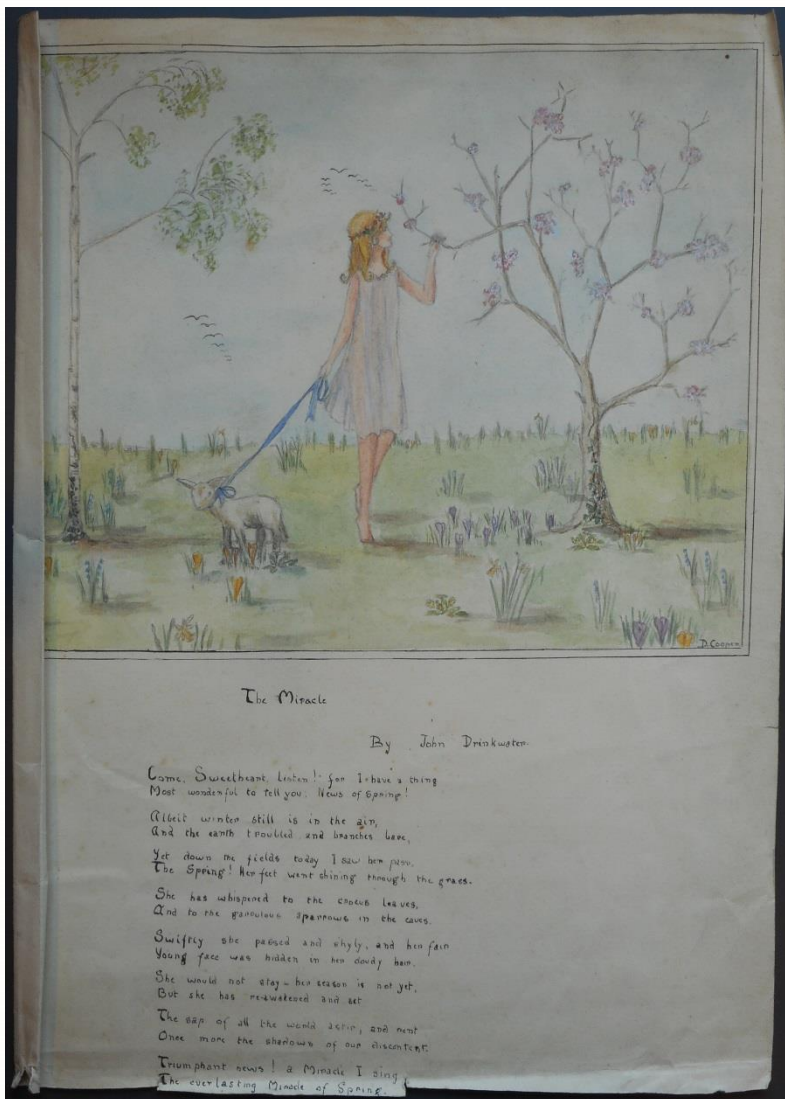 D. Cooper
The Miracle
By John Drinkwater.
Come, Sweetheart, listen! for I have a thing
Most wonderful to tell you. News of Spring!
Albeit winter still is in the air,
And the earth troubled and branches bare,
Yet down the fields today I saw her pass.
The Spring! Her feet went shining through the grass.
She has whispered to the crocus leaves,
And to the garrulous sparrows in the eaves.
Swiftly she passed and shyly, and her fair
Young face was hidden in her cloudy hair.
She would not stay – her season is not yet,
But she has re-awakened and set
The sap of all the world astir, and rent
Once more the shadows of our discontent.
Triumphant news! a Miracle I sing
The everlasting Miracle of Spring.